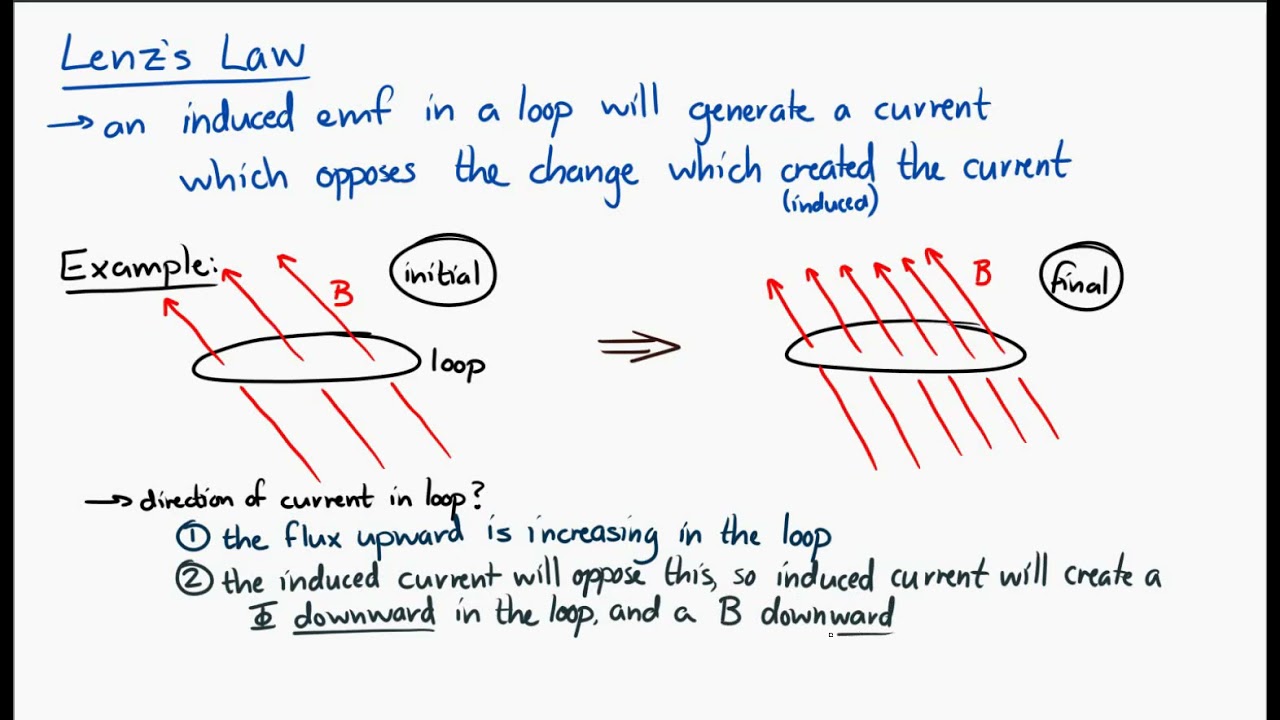 Lenz's Law
→ an induced emf in a loop will generate a current
which opposes the change which created the current
(induced)
Example:
B
initial
B
final
loop
→ direction of current in loop?
① the flux upward is increasing in the loop
② the induced current will oppose this, so induced current will create a
Φ downward in the loop, and a B downward